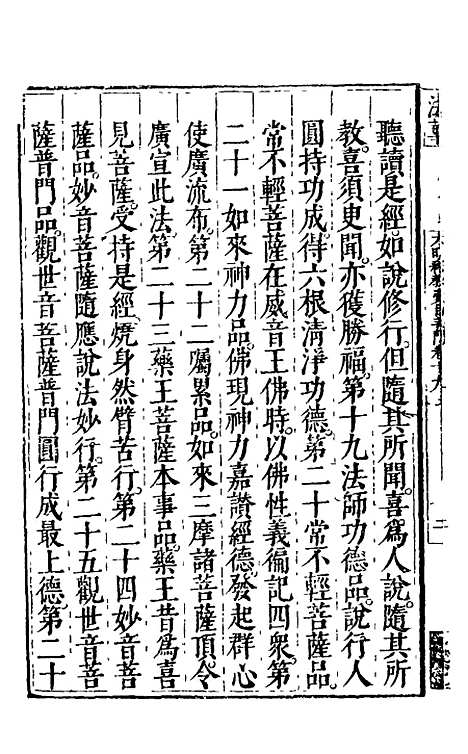 聽讀是經如說修行但隨其所聞喜為人說隨其所
教喜須臾聞亦獲勝福第十九法師功德品說行人
圓持功成得六根清淨功德第二十常不輕菩薩品
常不輕菩薩在威音王佛時以佛性義徧記四衆第
二十一如來神力品佛現神力嘉讃經德發起群心
使廣流布第二十二囑累品如來三摩諸菩薩頂令
廣宣此法第二十三藥王菩薩本事品藥王昔為喜
見菩薩受持是經燒身然臂苦行第二十四妙音菩
薩品妙音菩薩隨應說法妙行第二十五觀世音菩
薩普門品觀世音菩薩普門圓行成最上德第二十